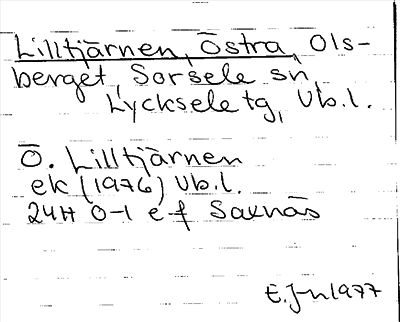 Lilltjärnen, Östra, Ols-
berget, Sorsele sn,
Lycksele tg, Vb.l.
Ö. Lilltjärnen
ek (1976) Vb.l.
24H 0-1 e-f Saxnäs
E.J-n 1977